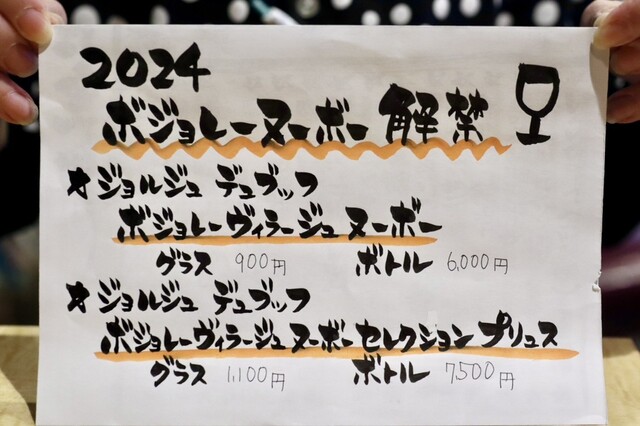 2024
ボジョレーヌーボー 解禁
★ジョルジュ デュブッフ
ボジョレーヴィラージュ ヌーボー
グラス 900円 ボトル 6,000円
★ジョルジュ デュブッフ
ボジョレーヴィラージュヌーボーセレクションプリュス
グラス 1,100円 ボトル 7,500円